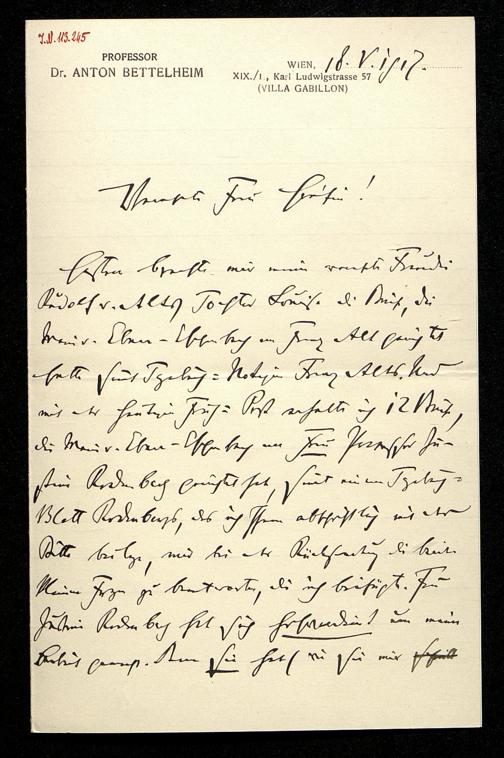 I.N. 113.245
PROFESSOR
Dr. ANTON BETTELHEIM
WIEN, 18. V. 1917.
XIX./1., Karl Ludwigstrasse 57
(VILLA GABILLON)
Verehrte Frau Gräfin!
Gestern brachte mir meine verehrte Freundin
Rudolf v. Alts Tochter Louise die Briefe, die
Marie v. Ebner-Eschenbach an Franz Alt gerichtet
hatte samt Tagebuch-Notizen Franz Alts. Und
mit der heutigen Früh-Post erhalte ich 12 Briefe,
die Marie v. Ebner-Eschenbach an Frau Ju-
stine Rodenberg gerichtet hat, samt einem Tagebuch-
Blatt Rodenbergs, das ich Ihnen abschriftlich mit der
Bitte beilege, mir bei der Rücksendung die beiden
kleinen Fragen zu beantworten, die ich beifügte. Frau
Justine Rodenberg hat sich um meine
. Denn sie hat mir